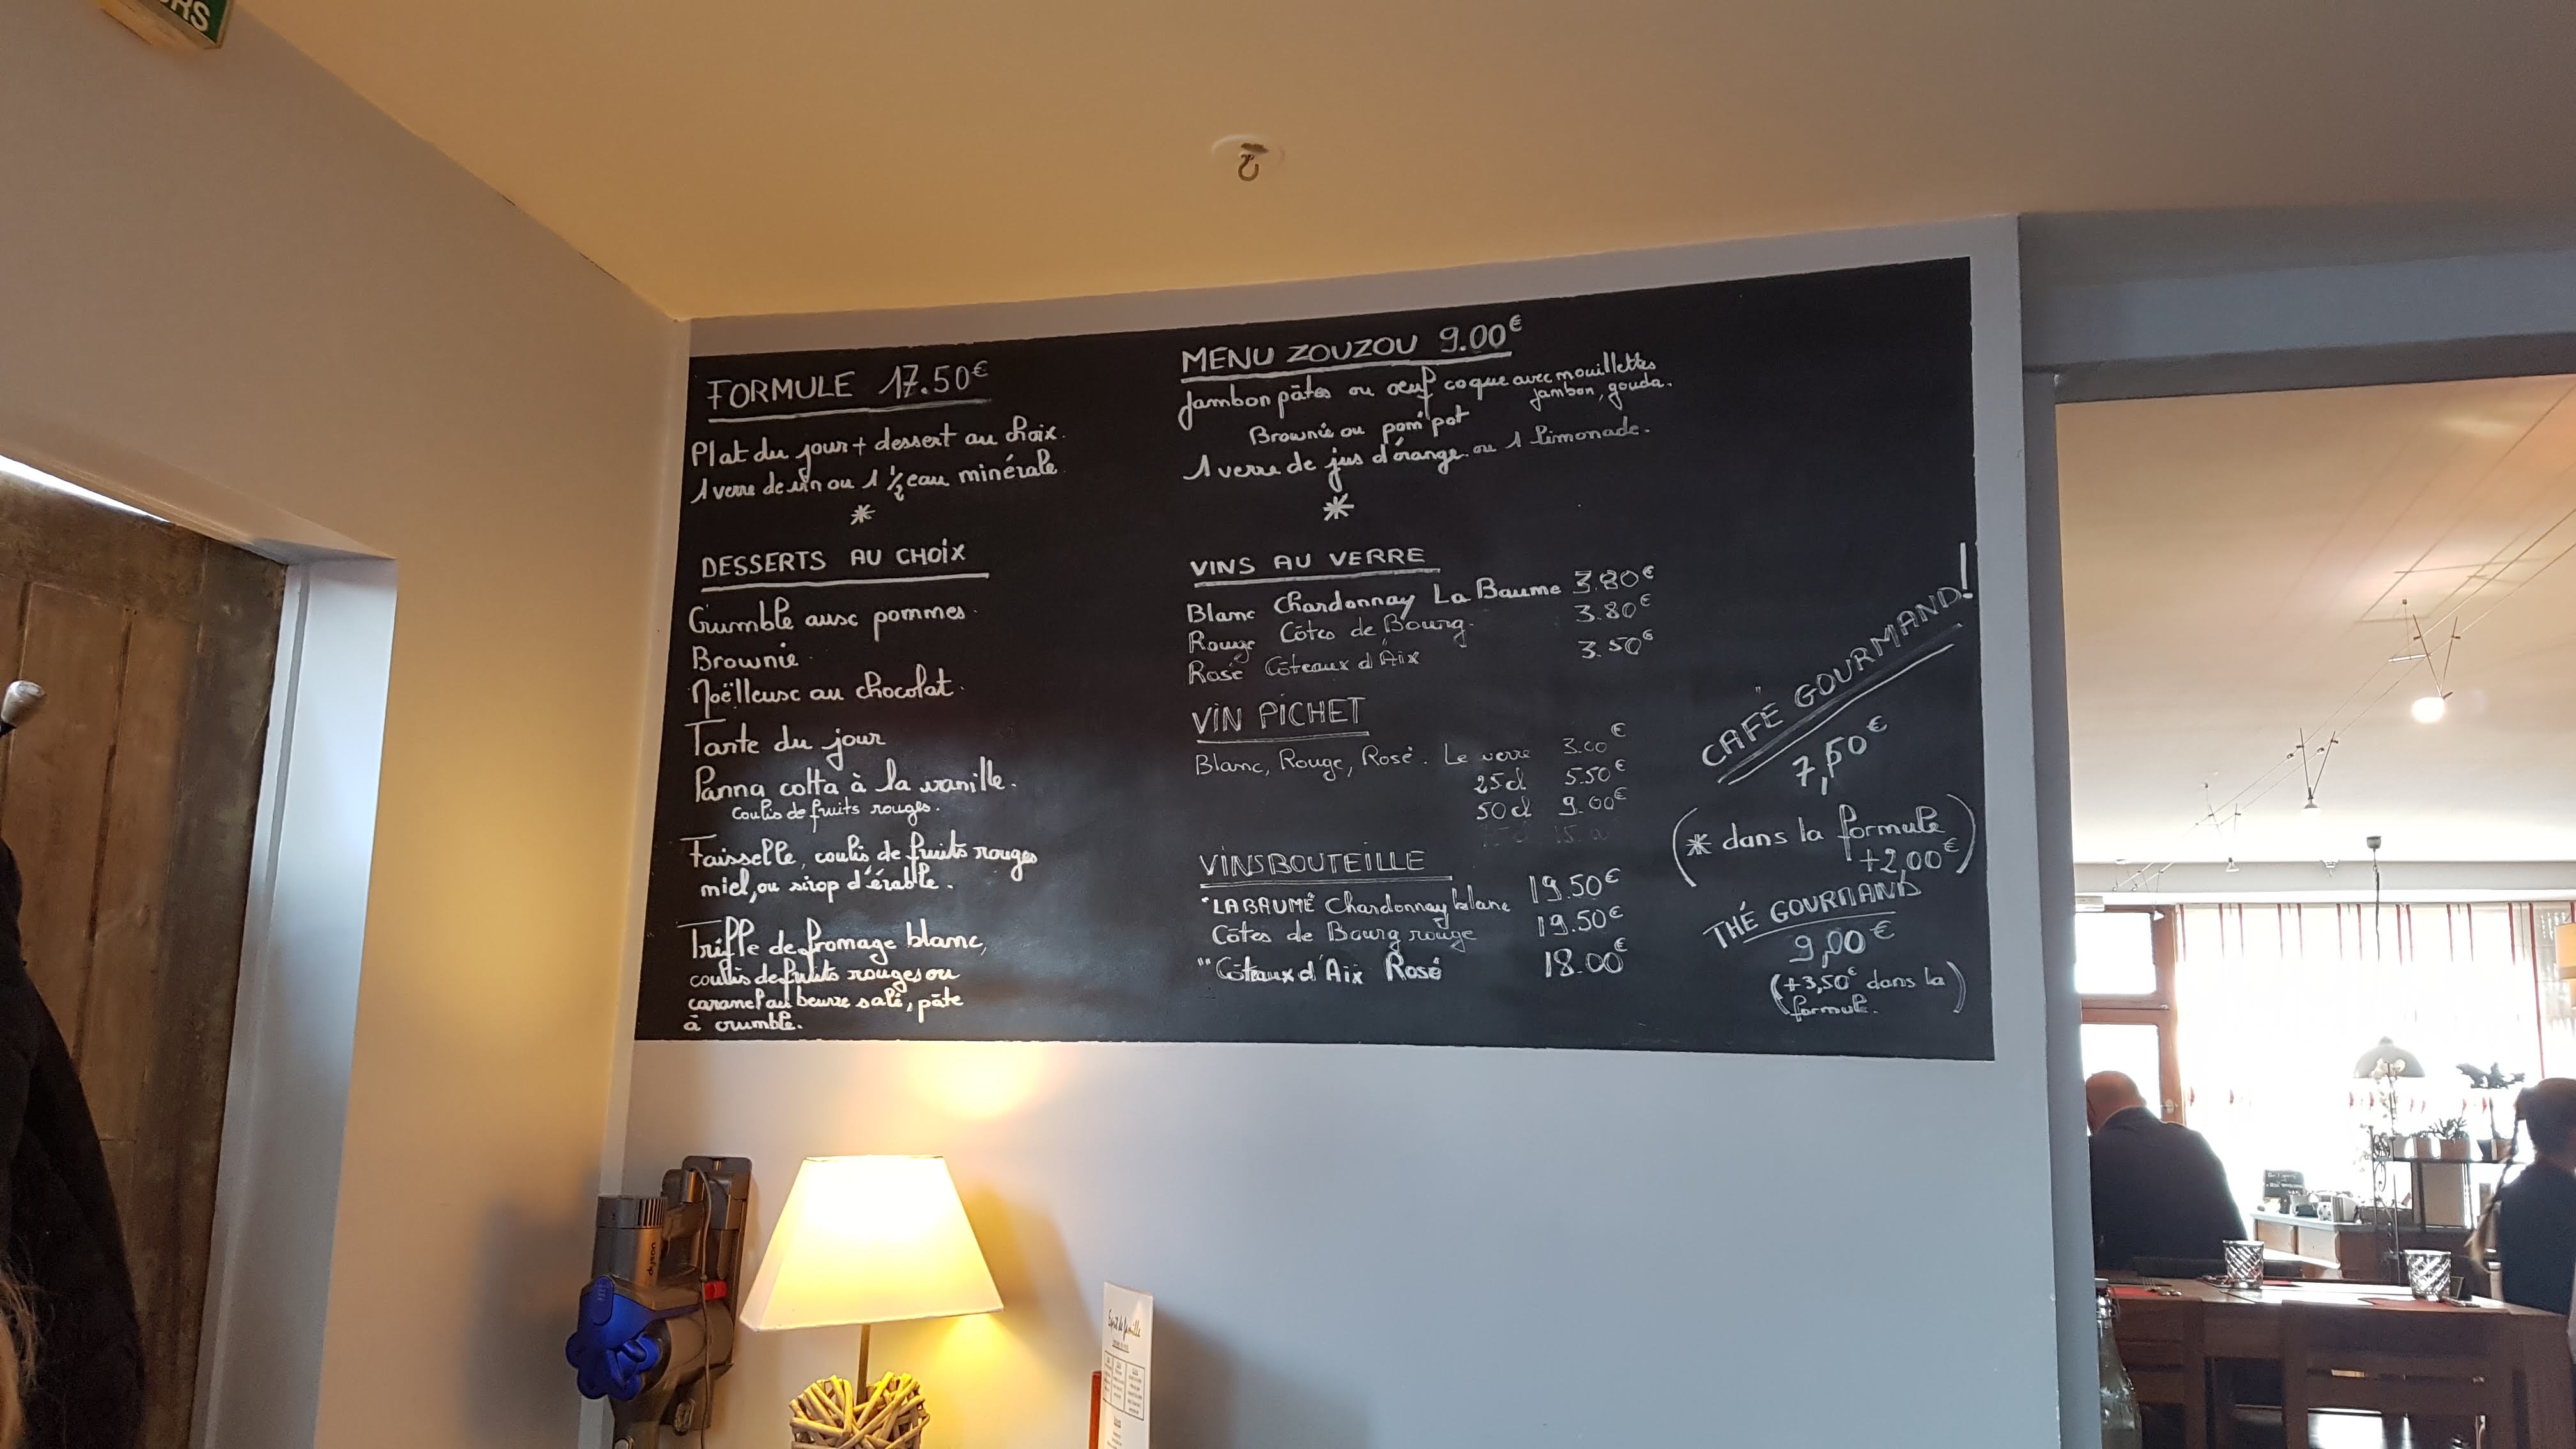 FORMULE 17.50€
Plat du jour + dessert au choix.
1 verre de vin ou 1 ½ eau minérale
*
DESSERTS AU CHOIX
Crumble aux pommes.
Brownie.
Moëlleux au chocolat.
Tarte du jour
Panna cotta à la vanille.
Coulis de fruits rouges.
Faisselle, coulis de fruits rouges
miel, ou sirop d'érable.
Triffle de fromage blanc,
coulis de fruits rouges ou
caramel au beurre salé, pâte
à crumble.
MENU ZOUZOU 9.00€
Jambon pâtes ou oeuf coque avec mouillettes
jambon, gouda.
Brownie ou pom'pot
1 verre de jus d'orange ou 1 limonade.
*
VINS AU VERRE
Blanc Chardonnay La Baume 3.80€
Rouge Côtes de Bourg. 3.80€
Rosé Côteaux d'Aix 3.50€
VIN PICHET
Blanc, Rouge, Rosé. Le verre 3.00€
25cl 5.50€
50cl 9.00€
VINS BOUTEILLE
"LA BAUME" Chardonnay blanc 19.50€
Côtes de Bourg rouge 19.50€
"" Côteaux d'Aix Rosé 18.00€
CAFÉ GOURMAND!
7,50€
(* dans la formule
+2,00€)
THÉ GOURMAND
9,00€
(+3,50€ dans la
formule.)
dyson
Esprit de famille